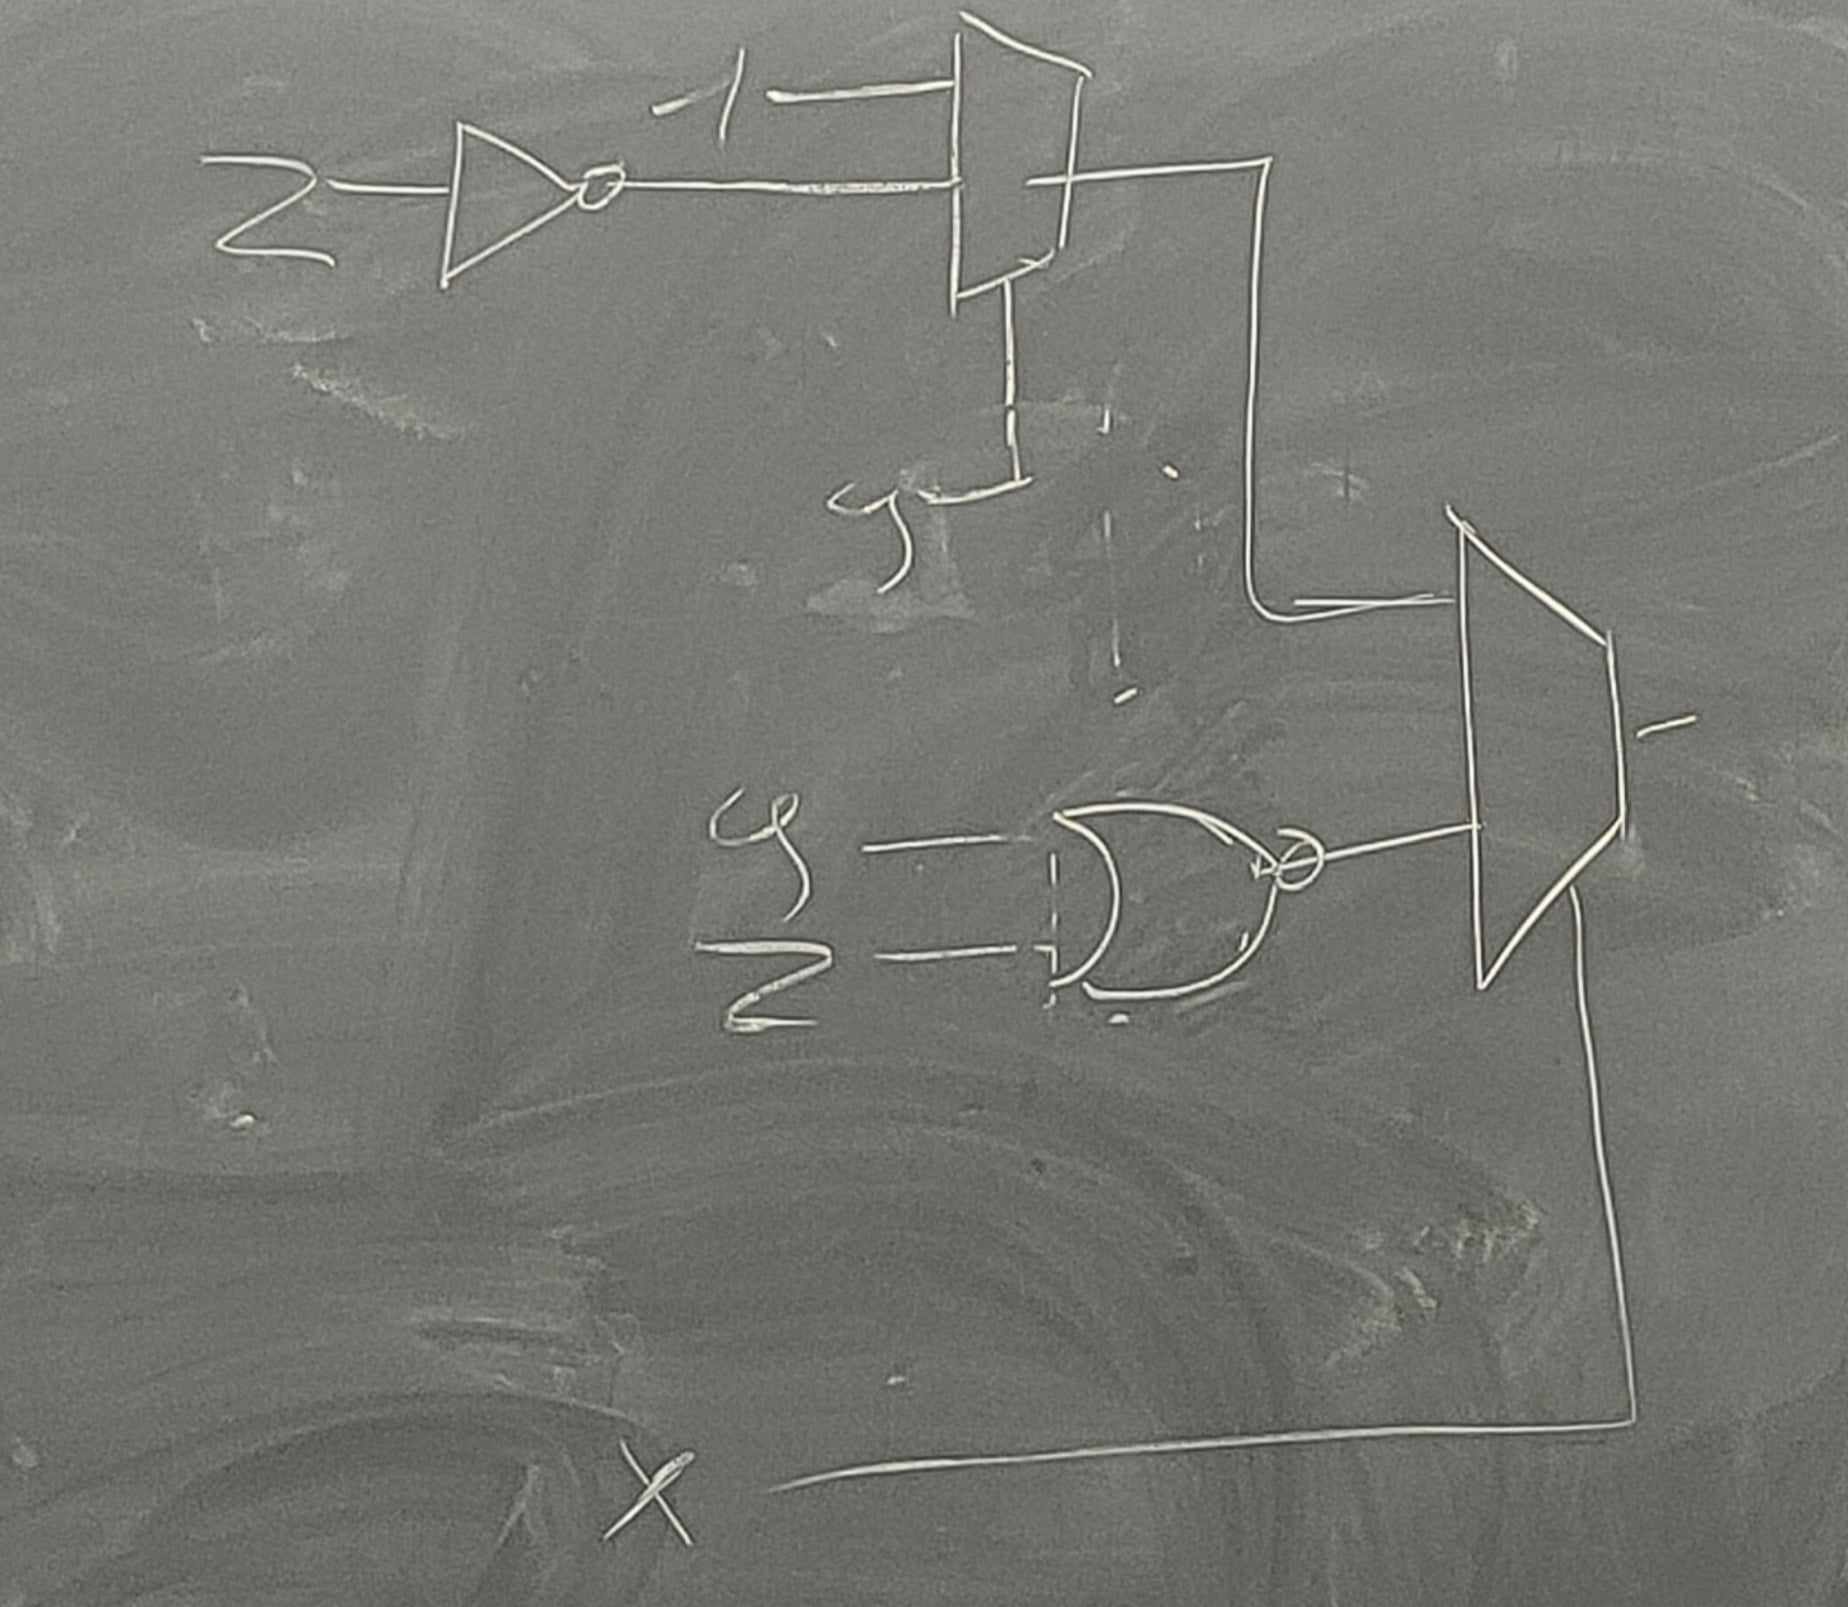 1
Z
y
y
Z
X